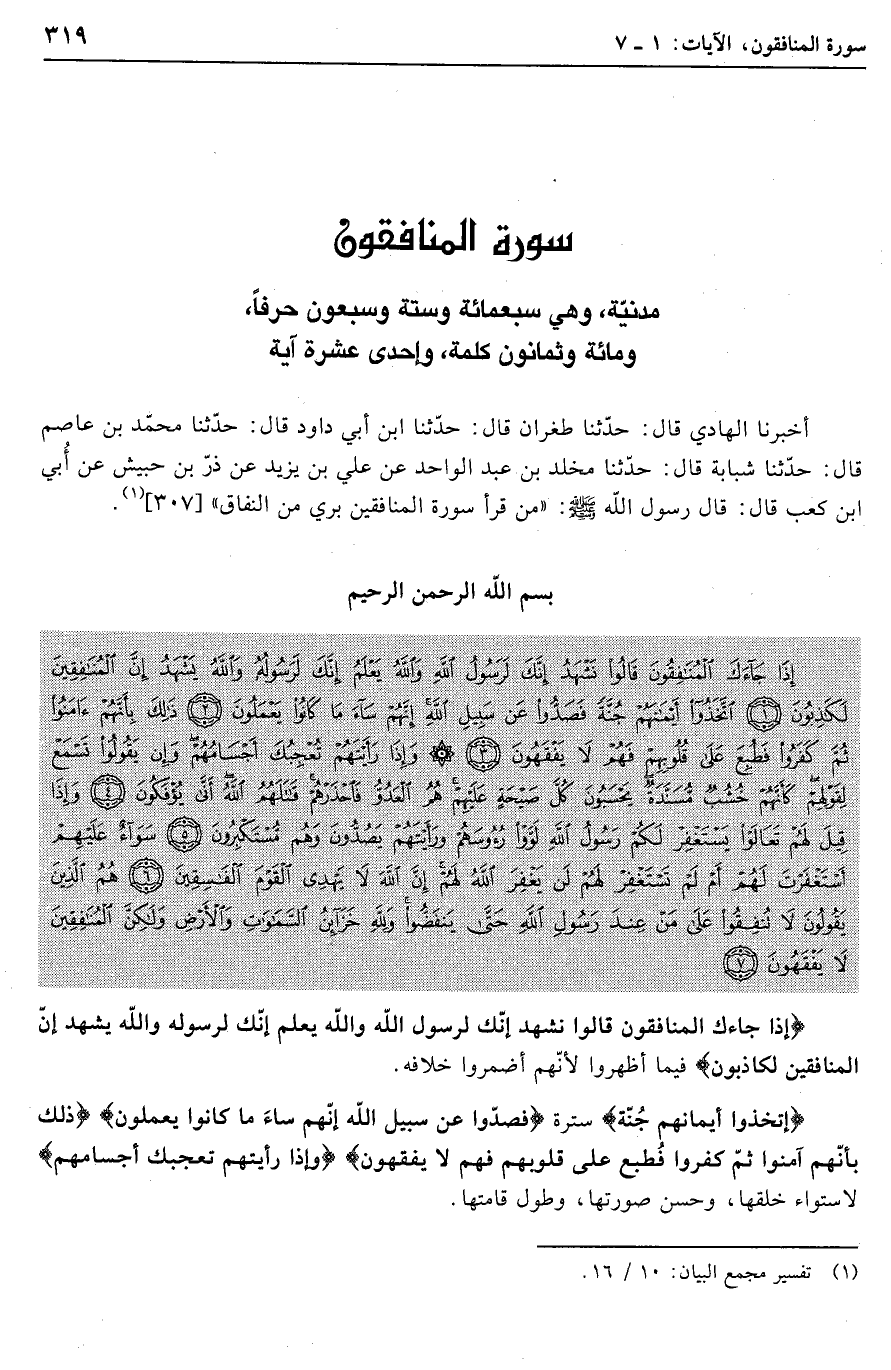 سورة المنافقون، الآيات: ١ ـ ٧
٣١٩
سورة المنافقون
مدنيّة، وهي سبعمائة وستة وسبعون حرفاً،
ومائة وثمانون كلمة، وإحدى عشرة آية
أخبرنا الهادي قال: حدّثنا طغران قال: حدّثنا ابن أبي داود قال: حدّثنا محمّد بن عاصم
قال: حدّثنا شبابة قال: حدّثنا مخلد بن عبد الواحد عن علي بن يزيد عن ذرّ بن حبيش عن أُبي
ابن كعب قال: قال رسول الله ﷺ: «من قرأ سورة المنافقين بري من النفاق» [٣٠٧](١).
بسم الله الرحمن الرحيم
إِذَا جَآءَكَ ٱلْمُنَافِقُونَ قَالُوا۟ نَشْهَدُ إِنَّكَ لَرَسُولُ ٱللَّهِ وَٱللَّهُ يَعْلَمُ إِنَّكَ لَرَسُولُهُۥ وَٱللَّهُ يَشْهَدُ إِنَّ ٱلْمُنَافِقِينَ
لَكَاذِبُونَ ١ ٱتَّخَذُوٓا۟ أَيْمَانَهُمْ جُنَّةً فَصَدُّوا۟ عَن سَبِيلِ ٱللَّهِ إِنَّهُمْ سَآءَ مَا كَانُوا۟ يَعْمَلُونَ ٢ ذَالِكَ بِأَنَّهُمْ ءَامَنُوا۟
ثُمَّ كَفَرُوا۟ فَطُبِعَ عَلَىٰ قُلُوبِهِمْ فَهُمْ لَا يَفْقَهُونَ ٣ ۞ وَإِذَا رَأَيْتَهُمْ تُعْجِبُكَ أَجْسَامُهُمْ وَإِن يَقُولُوا۟ تَسْمَعْ
لِقَوْلِهِمْ كَأَنَّهُمْ خُشُبٌ مُّسَنَّدَةٌ يَحْسَبُونَ كُلَّ صَيْحَةٍ عَلَيْهِمْ هُمُ ٱلْعَدُوُّ فَٱحْذَرْهُمْ قَاتَلَهُمُ ٱللَّهُ أَنَّىٰ يُؤْفَكُونَ ٤ وَإِذَا
قِيلَ لَهُمْ تَعَالَوْا۟ يَسْتَغْفِرْ لَكُمْ رَسُولُ ٱللَّهِ لَوَّوْا۟ رُءُوسَهُمْ وَرَأَيْتَهُمْ يَصُدُّونَ وَهُم مُّسْتَكْبِرُونَ ٥ سَوَآءٌ عَلَيْهِمْ
أَسْتَغْفَرْتَ لَهُمْ أَمْ لَمْ تَسْتَغْفِرْ لَهُمْ لَن يَغْفِرَ ٱللَّهُ لَهُمْ إِنَّ ٱللَّهَ لَا يَهْدِى ٱلْقَوْمَ ٱلْفَاسِقِينَ ٦ هُمُ ٱلَّذِينَ
يَقُولُونَ لَا تُنفِقُوا۟ عَلَىٰ مَنْ عِندَ رَسُولِ ٱللَّهِ حَتَّىٰ يَنفَضُّوا۟ وَلِلَّهِ خَزَآئِنُ ٱلسَّمَاوَاتِ وَٱلْأَرْضِ وَلَاكِنَّ ٱلْمُنَافِقِينَ
لَا يَفْقَهُونَ ٧
﴿إذا جاءك المنافقون قالوا نشهد إنّك لرسول الله والله يعلم إنّك لرسوله والله يشهد إنّ
المنافقين لكاذبون﴾ فيما أظهروا لأنّهم أضمروا خلافه.
﴿إتخذوا أيمانهم جُنّة﴾ سترة ﴿فصدّوا عن سبيل الله إنّهم ساءَ ما كانوا يعملون﴾ ﴿ذلك
بأنّهم آمنوا ثمّ كفروا فُطبع على قلوبهم فهم لا يفقهون﴾ ﴿وإذا رأيتهم تعجبك أجسامهم﴾
لاستواء خلقها، وحسن صورتها، وطول قامتها.
(١) تفسير مجمع البيان: ١٠ / ١٦.